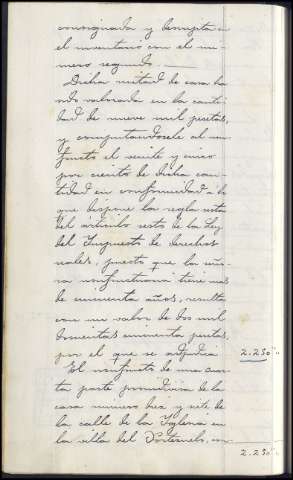 consignada y descrita en
el inventario con el nú-
mero segundo.
Dicha mitad de casa ha
sido valorada en la canti
dad de nueve mil pesetas,
y computandosele al usu
fructo el veinte y cinco
por ciento de dicha can
tidad en conformidad a lo
que dispone la regla sexta
del artículo sesto de la Ley
del Impuesto de derechos
reales, puesto que la seño-
ra usufructuaria tiene mas
de cincuenta años, resulta
con un valor de dos mil
doscientas cincuenta pesetas,
por el que se adjudica 2.250"
El usufructo de una cuar
ta parte proindivisa de la
casa numero diez y siete de
la calle de la Iglesia en
la villa del Portezuelo, en
2.250"